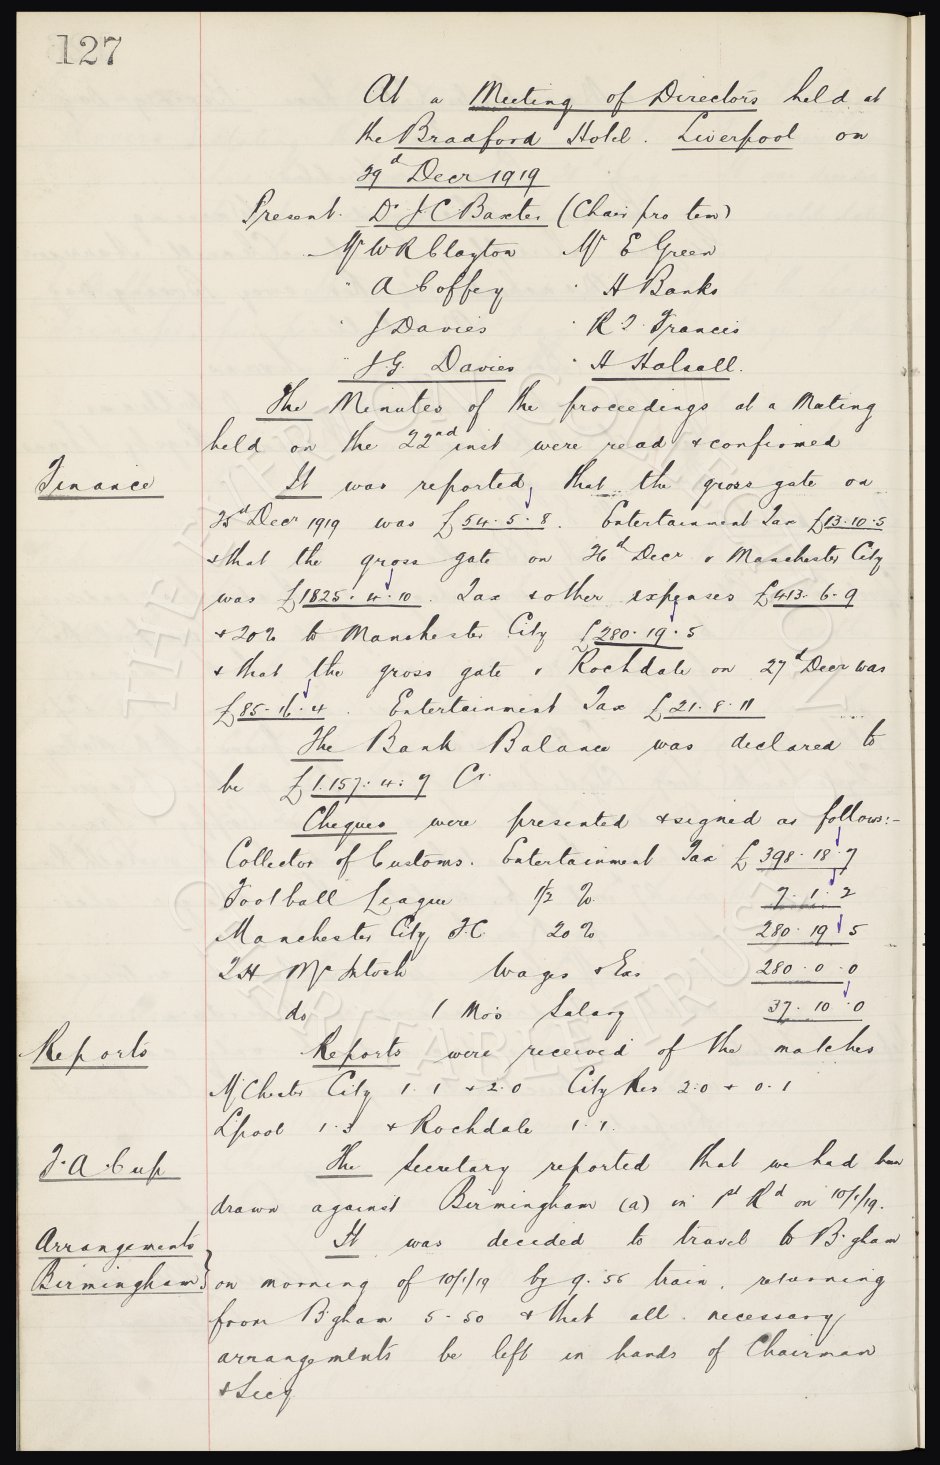 127
At a Meeting of Directors held at
the Bradford Hotel. Liverpool on
29d Decr 1919
Present. Dr J C Baxter (Chair pro tem)
Mr W R Clayton Mr E Green
" A Coffey " H Banks
" J Davies " R T Francis
" J.G. Davies " H Halsall.
The Minutes of the proceedings at a Meeting
held on the 22nd inst were read & confirmed
Finance It was reported, that the gross gate on
25d Decr 1919 was £54.5.8. Entertainment Tax £13.10.5
& that the gross gate on 26d Decr v Manchester City
was £1825.4.10. Tax & other expenses £413.6.9
& 20% to Manchester City £280.19.5
& that the gross gate v Rochdale on 27d Decr was
£85.16.4. Entertainment Tax £21.8.11
The Bank Balance was declared to
be £1.157.4.7 Cr.
Cheques were presented & signed as follows:-
Collector of Customs. Entertainment Tax £398.18.7
Football League 1/2 % 7.1.2
Manchester City F.C. 20% 280.19.5
T H McIntosh Wages & Exs 280.0.0
do 1 Mo's Salary 37.10.0
Reports Reports were received of the matches
M'Chester City 1.1 & 2.0 City Res 2.0 & 0.1
L'pool 1.3 & Rochdale 1.1.
F.A. Cup The Secretary reported that we had been
drawn against Birmingham (a) in 1st Rd on 10/1/19.
Arrangements It was decided to travel to B'gham
Birmingham} on morning of 10/1/19 by 9.55 train, returning
from B'gham 5-50 & that all necessary
arrangements be left in hands of Chairman
& Secy
© THE EVERTON COLLECTION CHARITABLE TRUST